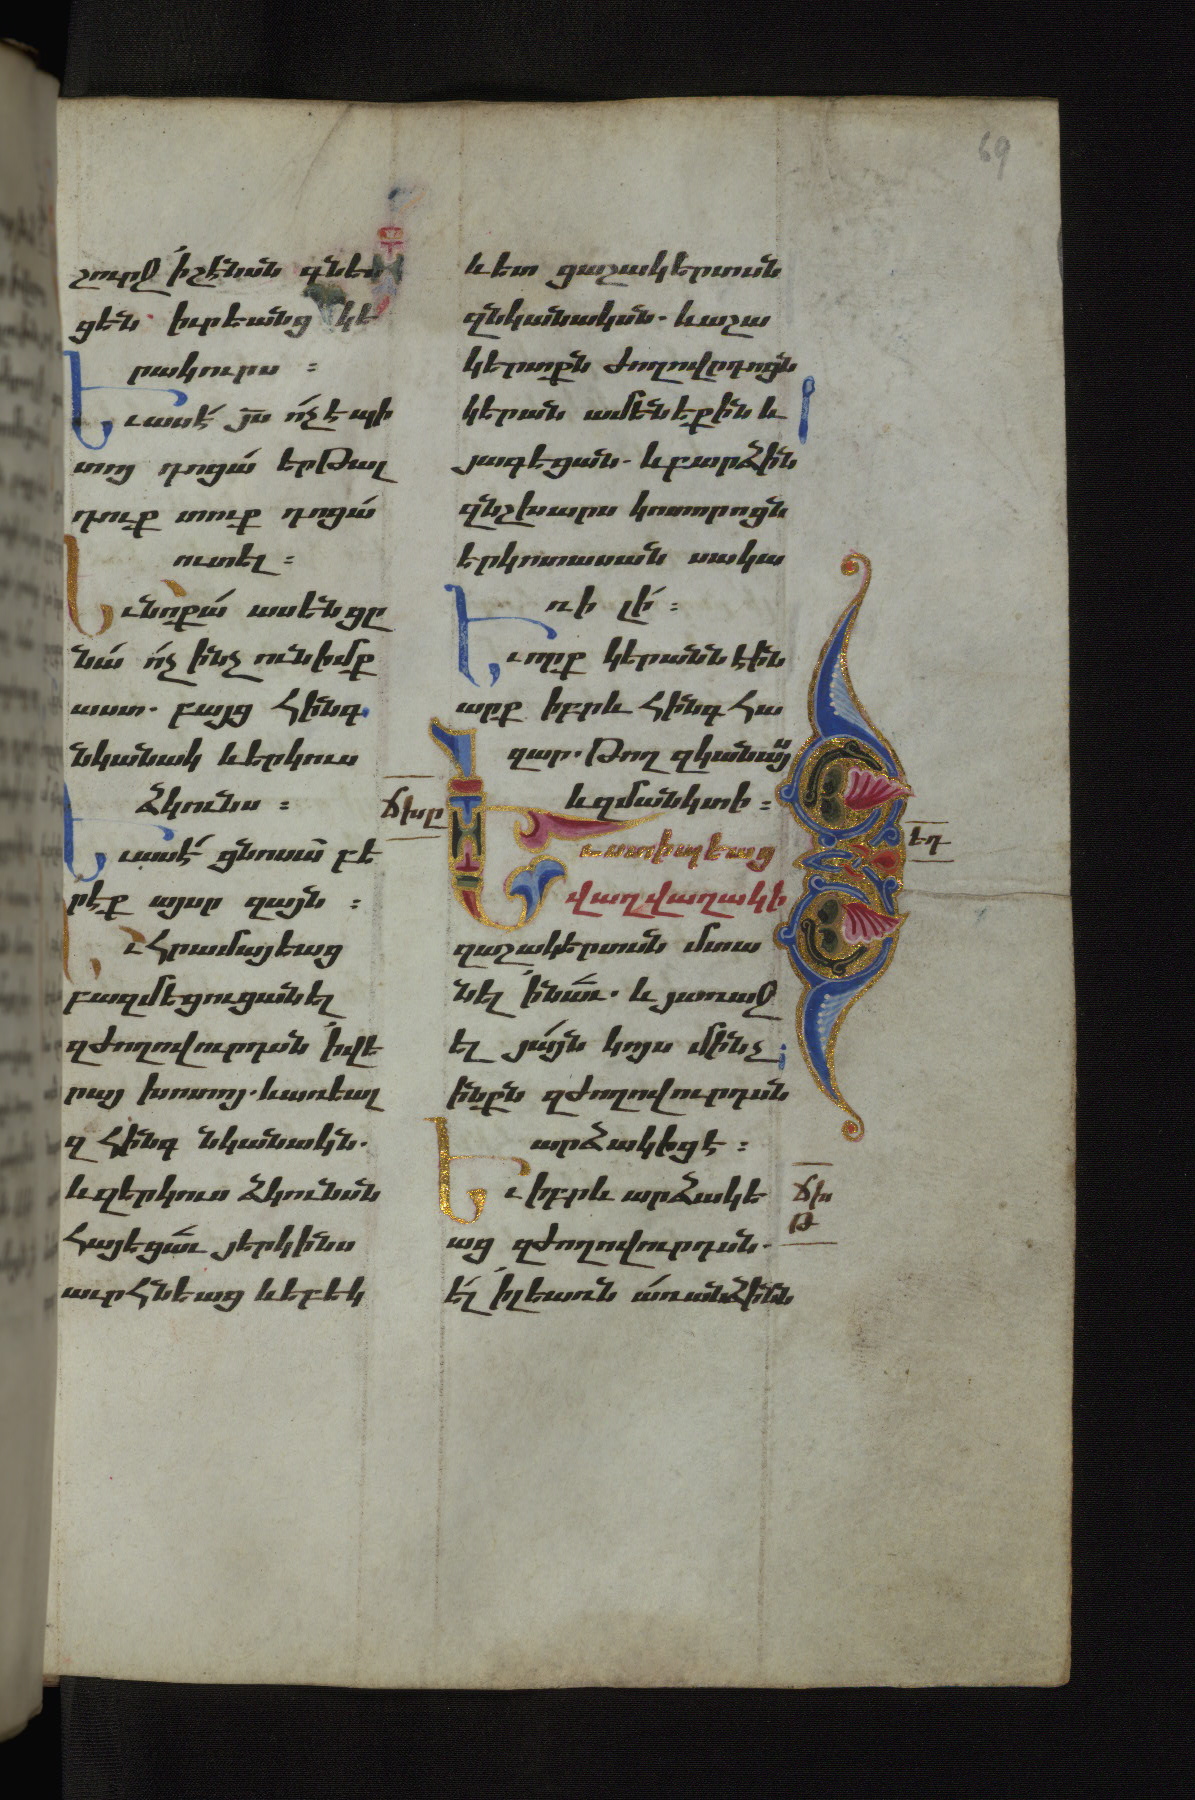 69
շուրջ ՛ի շէնսն գնես
ցեն իւրեանց կե
րակուրս :
Եւ ասէ՛ յս ո՛չ է պի
տոյ դոցա՛ երթալ
դուք տուք դոցա՛
ուտել :
Եւ նոքա՛ ասեն ցը
նա՛ ո՛չ ինչ ունիմք
աստ. բայց հինգ
նկանակ և երկուս
ձկունս :
Եւ ասէ՛ ցնոսա՛ բե
րէք այսր զայն :
Եւ հրամայեաց
բազմեցուցանել
զժողովուրդսն ՛ի վե
րայ խոտոյ. և առեալ
զ հինգ նկանակն.
և զերկուս ձկունսն
հայեցաւ յերկինս
աւրհնեաց և եբեկ
և ետ ցաշակերտսն
զնկանակսն. և աշա
կերտքն ժողովըրդոցն
կերան ամենեքին և
յագեցան. և բարձին
զնշխարս կոտորոցն
երկոտասան սակա
ռի լի՛ :
Եւ որք կերանն էին
արք իբրև հինգ հա
զար. թող զկանայս
և զմանկտի :
ճխը
Եւ ստիպեաց
եղ
վաղվաղակի
զաշակերտսն մտա
նել ՛ի նաւ. և յառաջ
ել յա՛յն կոյս մինչ
ինքն զժողովուրդսն
արձակիցէ :
Եւ իբրև արձակե
ճխ
թ
աց զժողովուրդսն.
ել ՛ի լեառն առանձինն